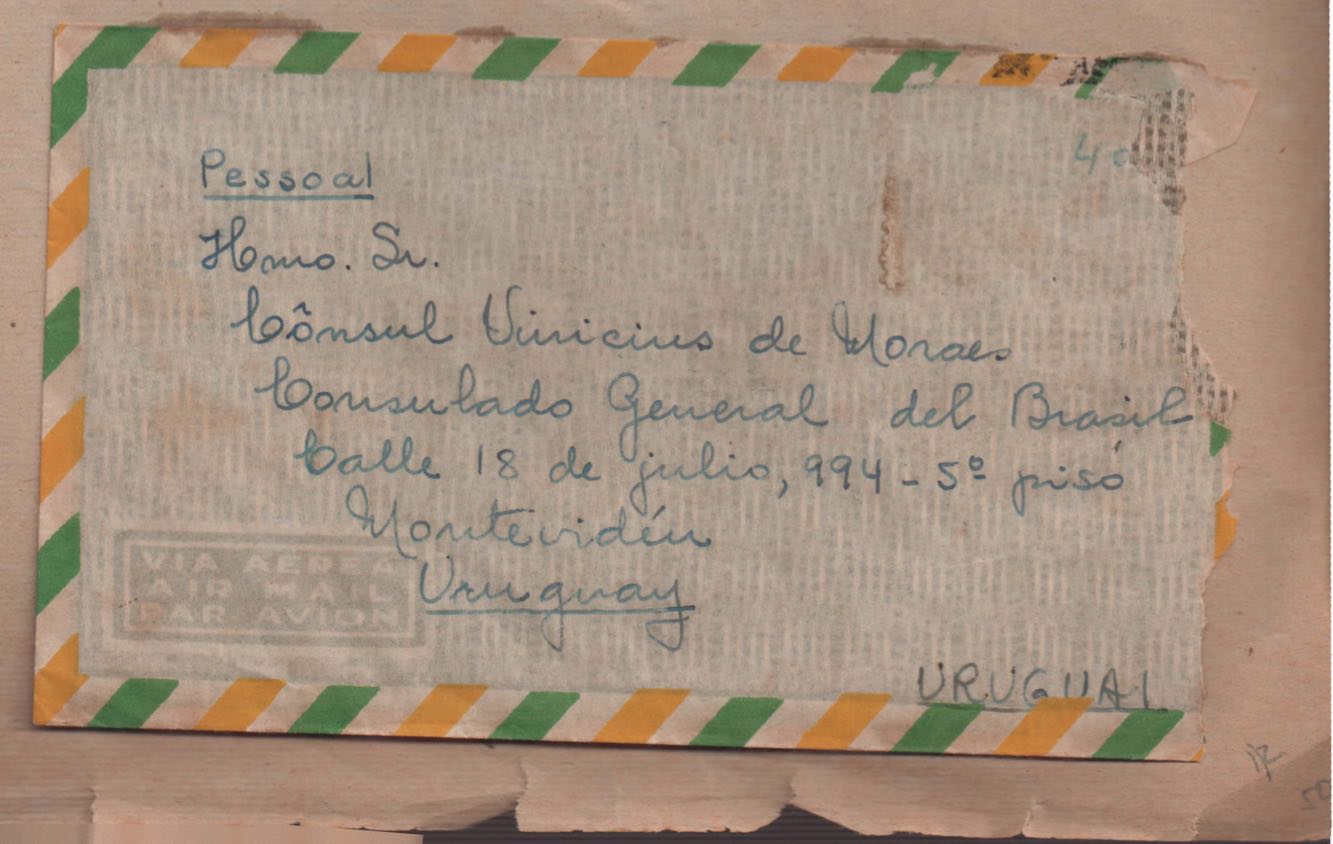 40
Pessoal
Ilmo. Sr.
Cônsul Vinicius de Moraes
Consulado General del Brasil
Calle 18 de julio, 994 - 5º piso
Montevidéu
Uruguay
VIA AEREA
AIR MAIL
PAR AVION
URUGUAI
50